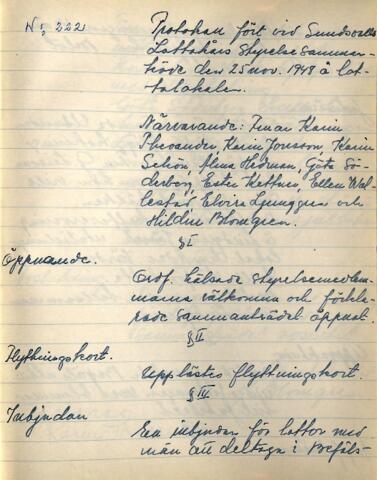 No; 222
Protokoll fört vid Sundsvalls
Lottakårs styrelsesamman-
träde den 25 nov. 1948 å lot-
talokalen.
Närvarande: Fruar Karin
Theander, Karin Jonsson Karin
Schön, Alma Hedman, Göta Sö-
derberg, Ester Kettner, Ellen Wal-
lestad, Elvira Ljunggren och
Hildur Blomgren.
§ I
Öppnande.
Ordf. hälsade styrelsemedlem-
marna välkomna och förkla-
rade sammanträdet öppnat.
§ II
Flyttningskort.
Upplästes flyttningskort.
§ III
Inbjudan
En inbjudan för lottor med
män att deltaga i Befäls-